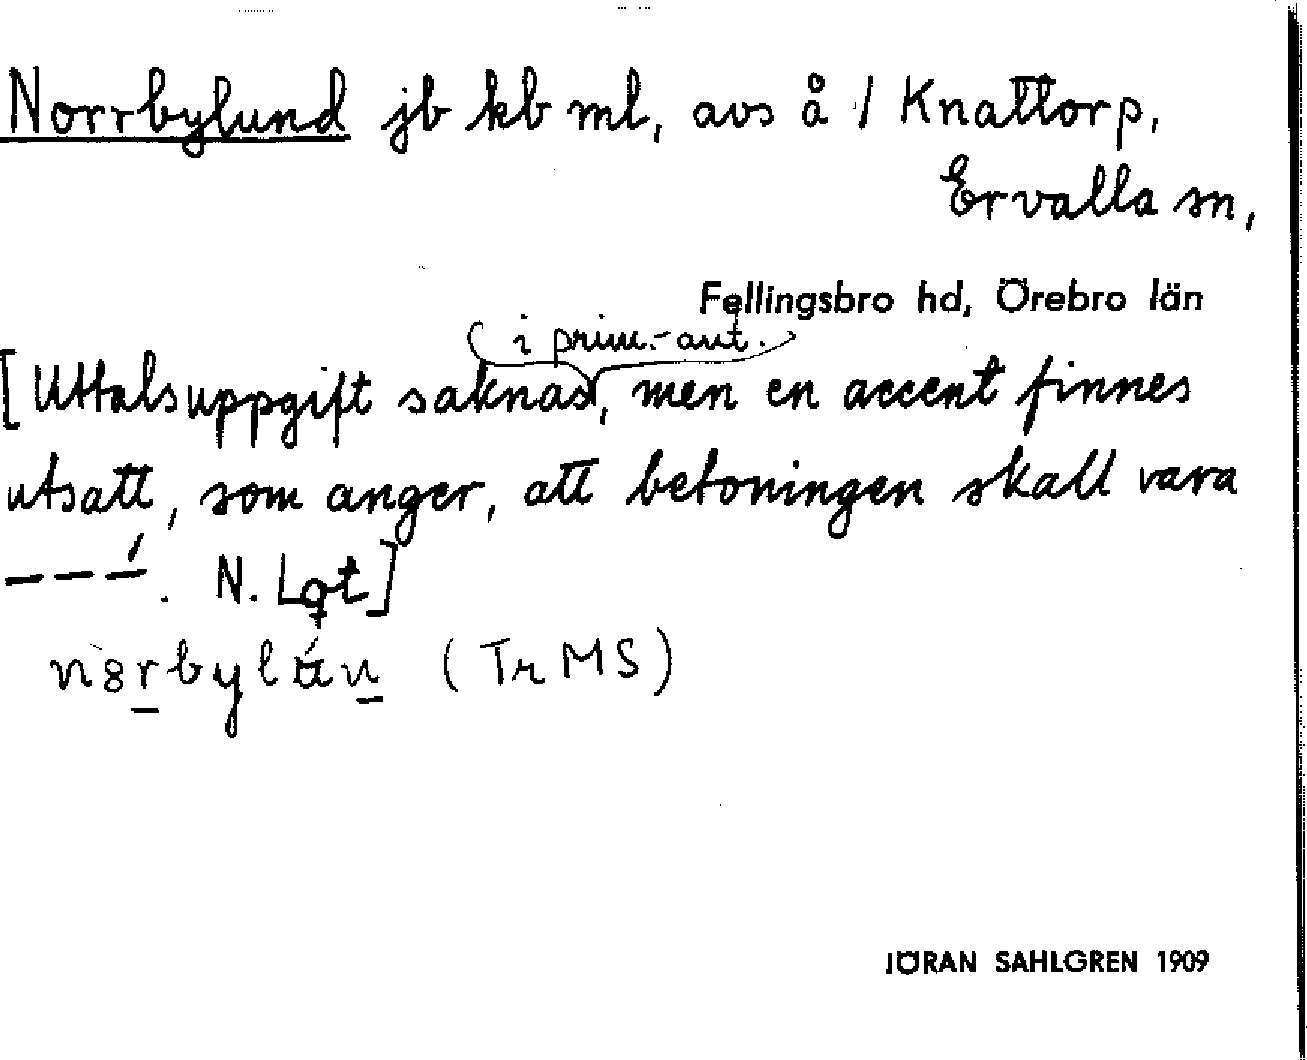 Norrbylund jb kb ml, avs å 1 Knattorp,
Ervalla sn,
Fellingsbro hd, Örebro län
(i prim.-ant.)
[Uttalsuppgift saknas, men en accent finnes
utsatt, som anger, att betoningen skall vara
– – –́. N. Lgt]
(Tr MS)
JÖRAN SAHLGREN 1909